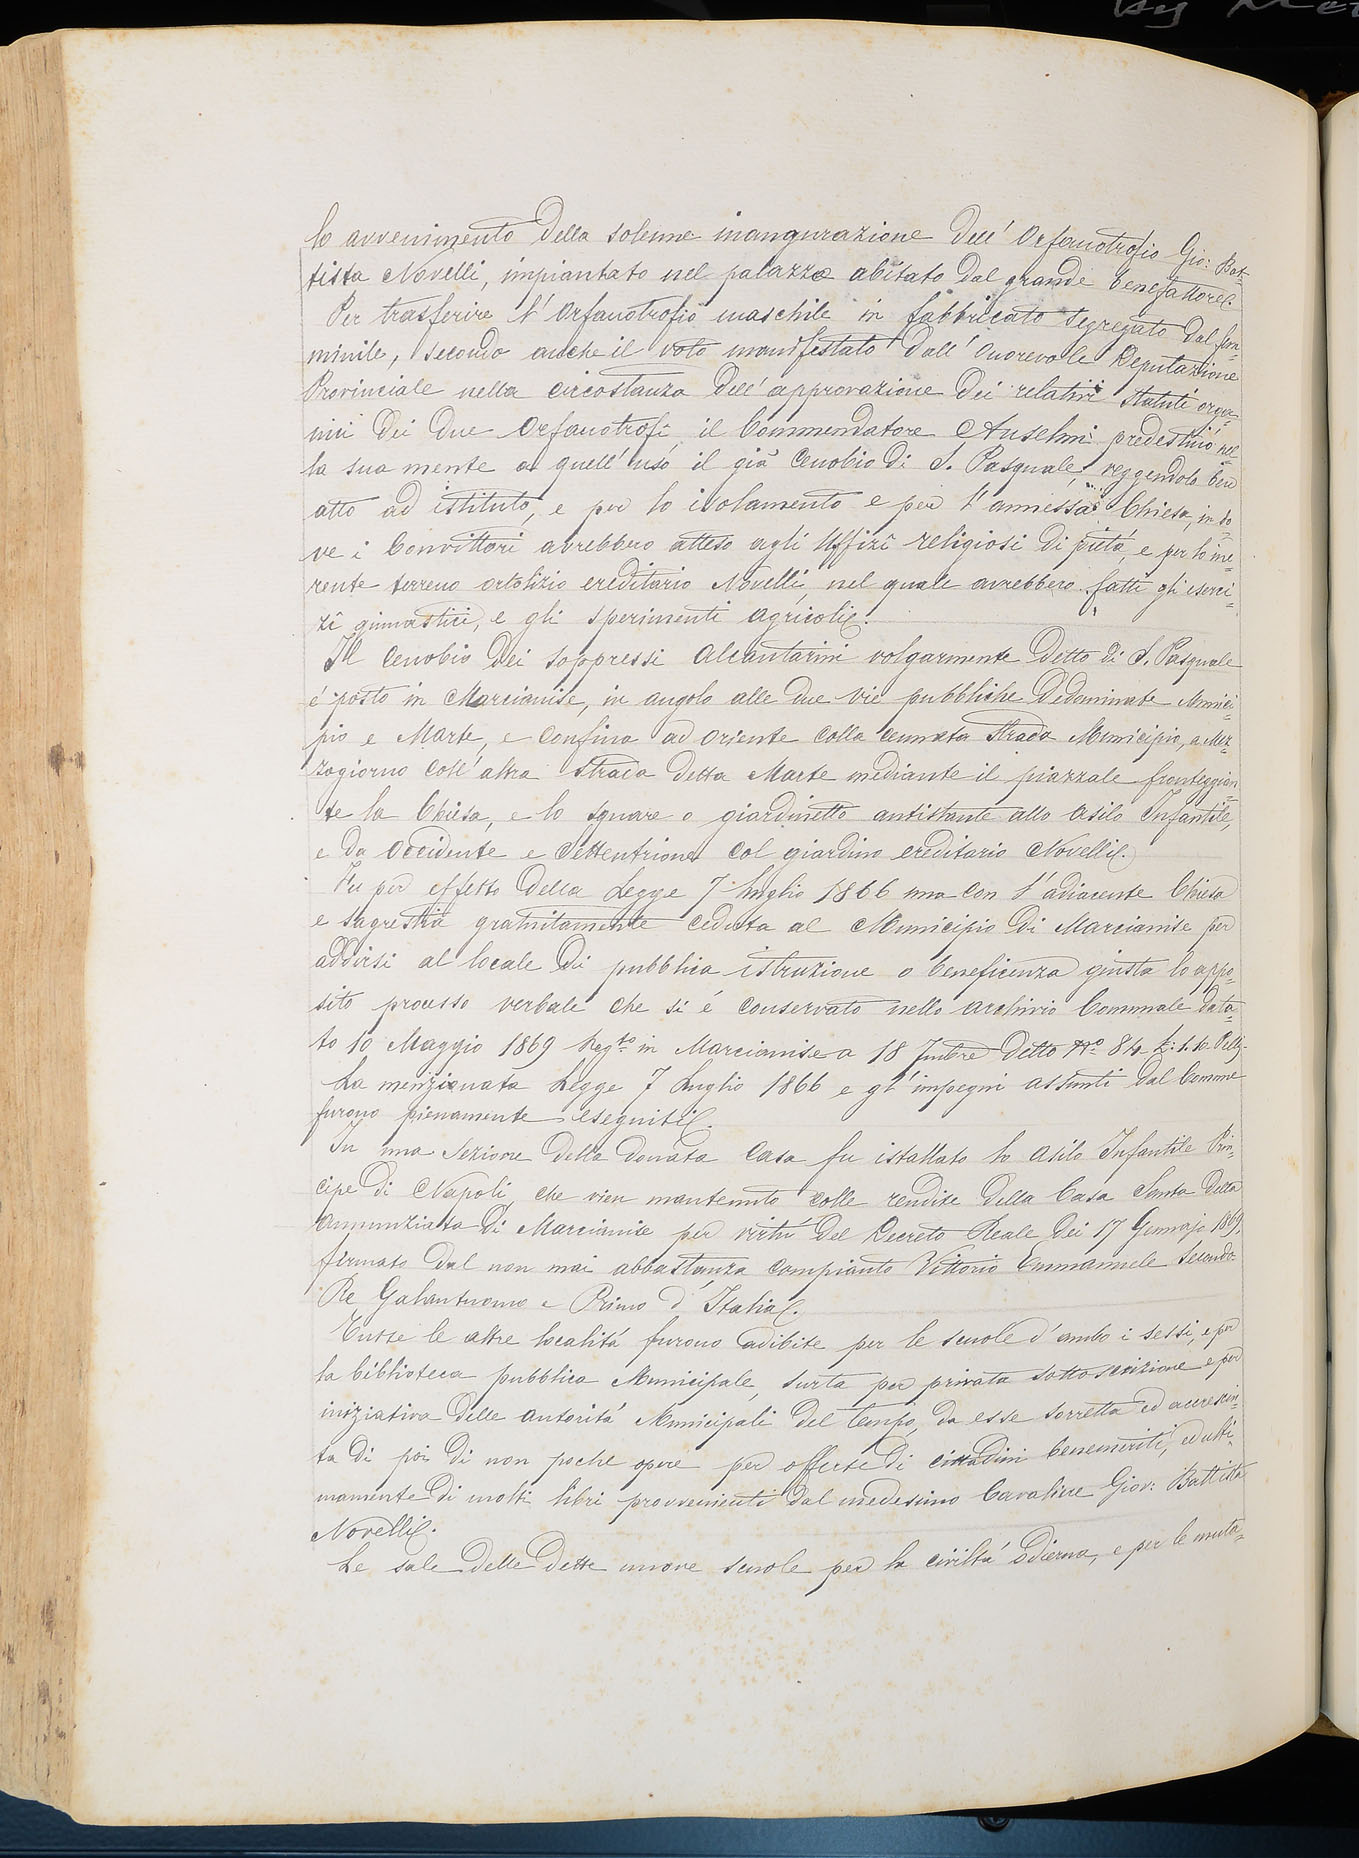 by
lo avvenimento della solenne inaugurazione dell'Orfanotrofio Gio: Bat-
tista Novelli, impiantato nel palazzo abitato dal grande benefattore.
Per trasferire l'Orfanotrofio maschile in fabbricato segregato dal fem-
minile, secondo anche il voto manifestato dall'Onorevole Deputazione
Provinciale nella circostanza dell'approvazione dei relativi statuti orga-
nici dei due Orfanotrofi, il Commendatore Anselmi predestinò nel-
la sua mente a quell'uso il già Cenobio di S. Pasquale, reggendolo ben
atto ad istituto, e per lo isolamento e per l'annessa Chiesa, in do-
ve i Convittori avrebbero atteso agli Uffizî religiosi di pietà, e per lo ine-
rente terreno ortolizio ereditario Novelli, nel quale avrebbero fatti gli eserci-
zî ginnastici, e gli sperimenti agricoli.
Il Cenobio dei soppressi Alcantarini volgarmente detto di S. Pasquale
è posto in Marcianise, in angolo alle due vie pubbliche dedominate Munici-
pio e Marte, e confina ad oriente colla cennata strada Municipio, a Mez-
zogiorno coll'altra strada detta Marte mediante il piazzale fronteggian-
te la Chiesa, e lo square o giardinetto antistante allo asilo Infantile,
e da Occidente e Settentrione col giardino ereditario Novelli.
Fu per effetto della Legge 7 luglio 1866 una con l'adiacente Chiesa
e sagrestia gratuitamente ceduta al Municipio di Marcianise per
addirsi al locale di pubblica istruzione o beneficenza giusta lo appo-
sito processo verbale che si è conservato nello archivio Comunale data-
to 10 Maggio 1869 Reg.to in Marcianise a 18 detto N.o 84
La menzionata Legge 7 Luglio 1866 e gl'impegni assunti dal Comune
furono pienamente eseguiti.
In una sezione della donata Casa fu istallato lo Asilo Infantile Prin-
cipe di Napoli, che vien mantenuto colle rendite della Casa Santa della
Annunziata di Marcianise per virtù del Decreto Reale dei 17 Gennajo 1869,
firmato dal non mai abbastanza compianto Vittorio Emmanuele Secondo
Re Galantuomo e Primo d'Italia.
Tutte le altre località furono adibite per le scuole d'ambo i sessi, e per
la biblioteca pubblica Municipale, surta per privata sottoscrizione e per
iniziativa delle autorità Municipali del tempo, da esse sorretta ed accresciu-
ta di poi di non poche opere per offerte di cittadini benemeriti, ed ulti-
mamente di molti libri provvenienti dal medesimo Cavaliere Giov: Battista
Novelli.
Le sale delle dette nuove scuole per la civiltà odierna, e per le muta-